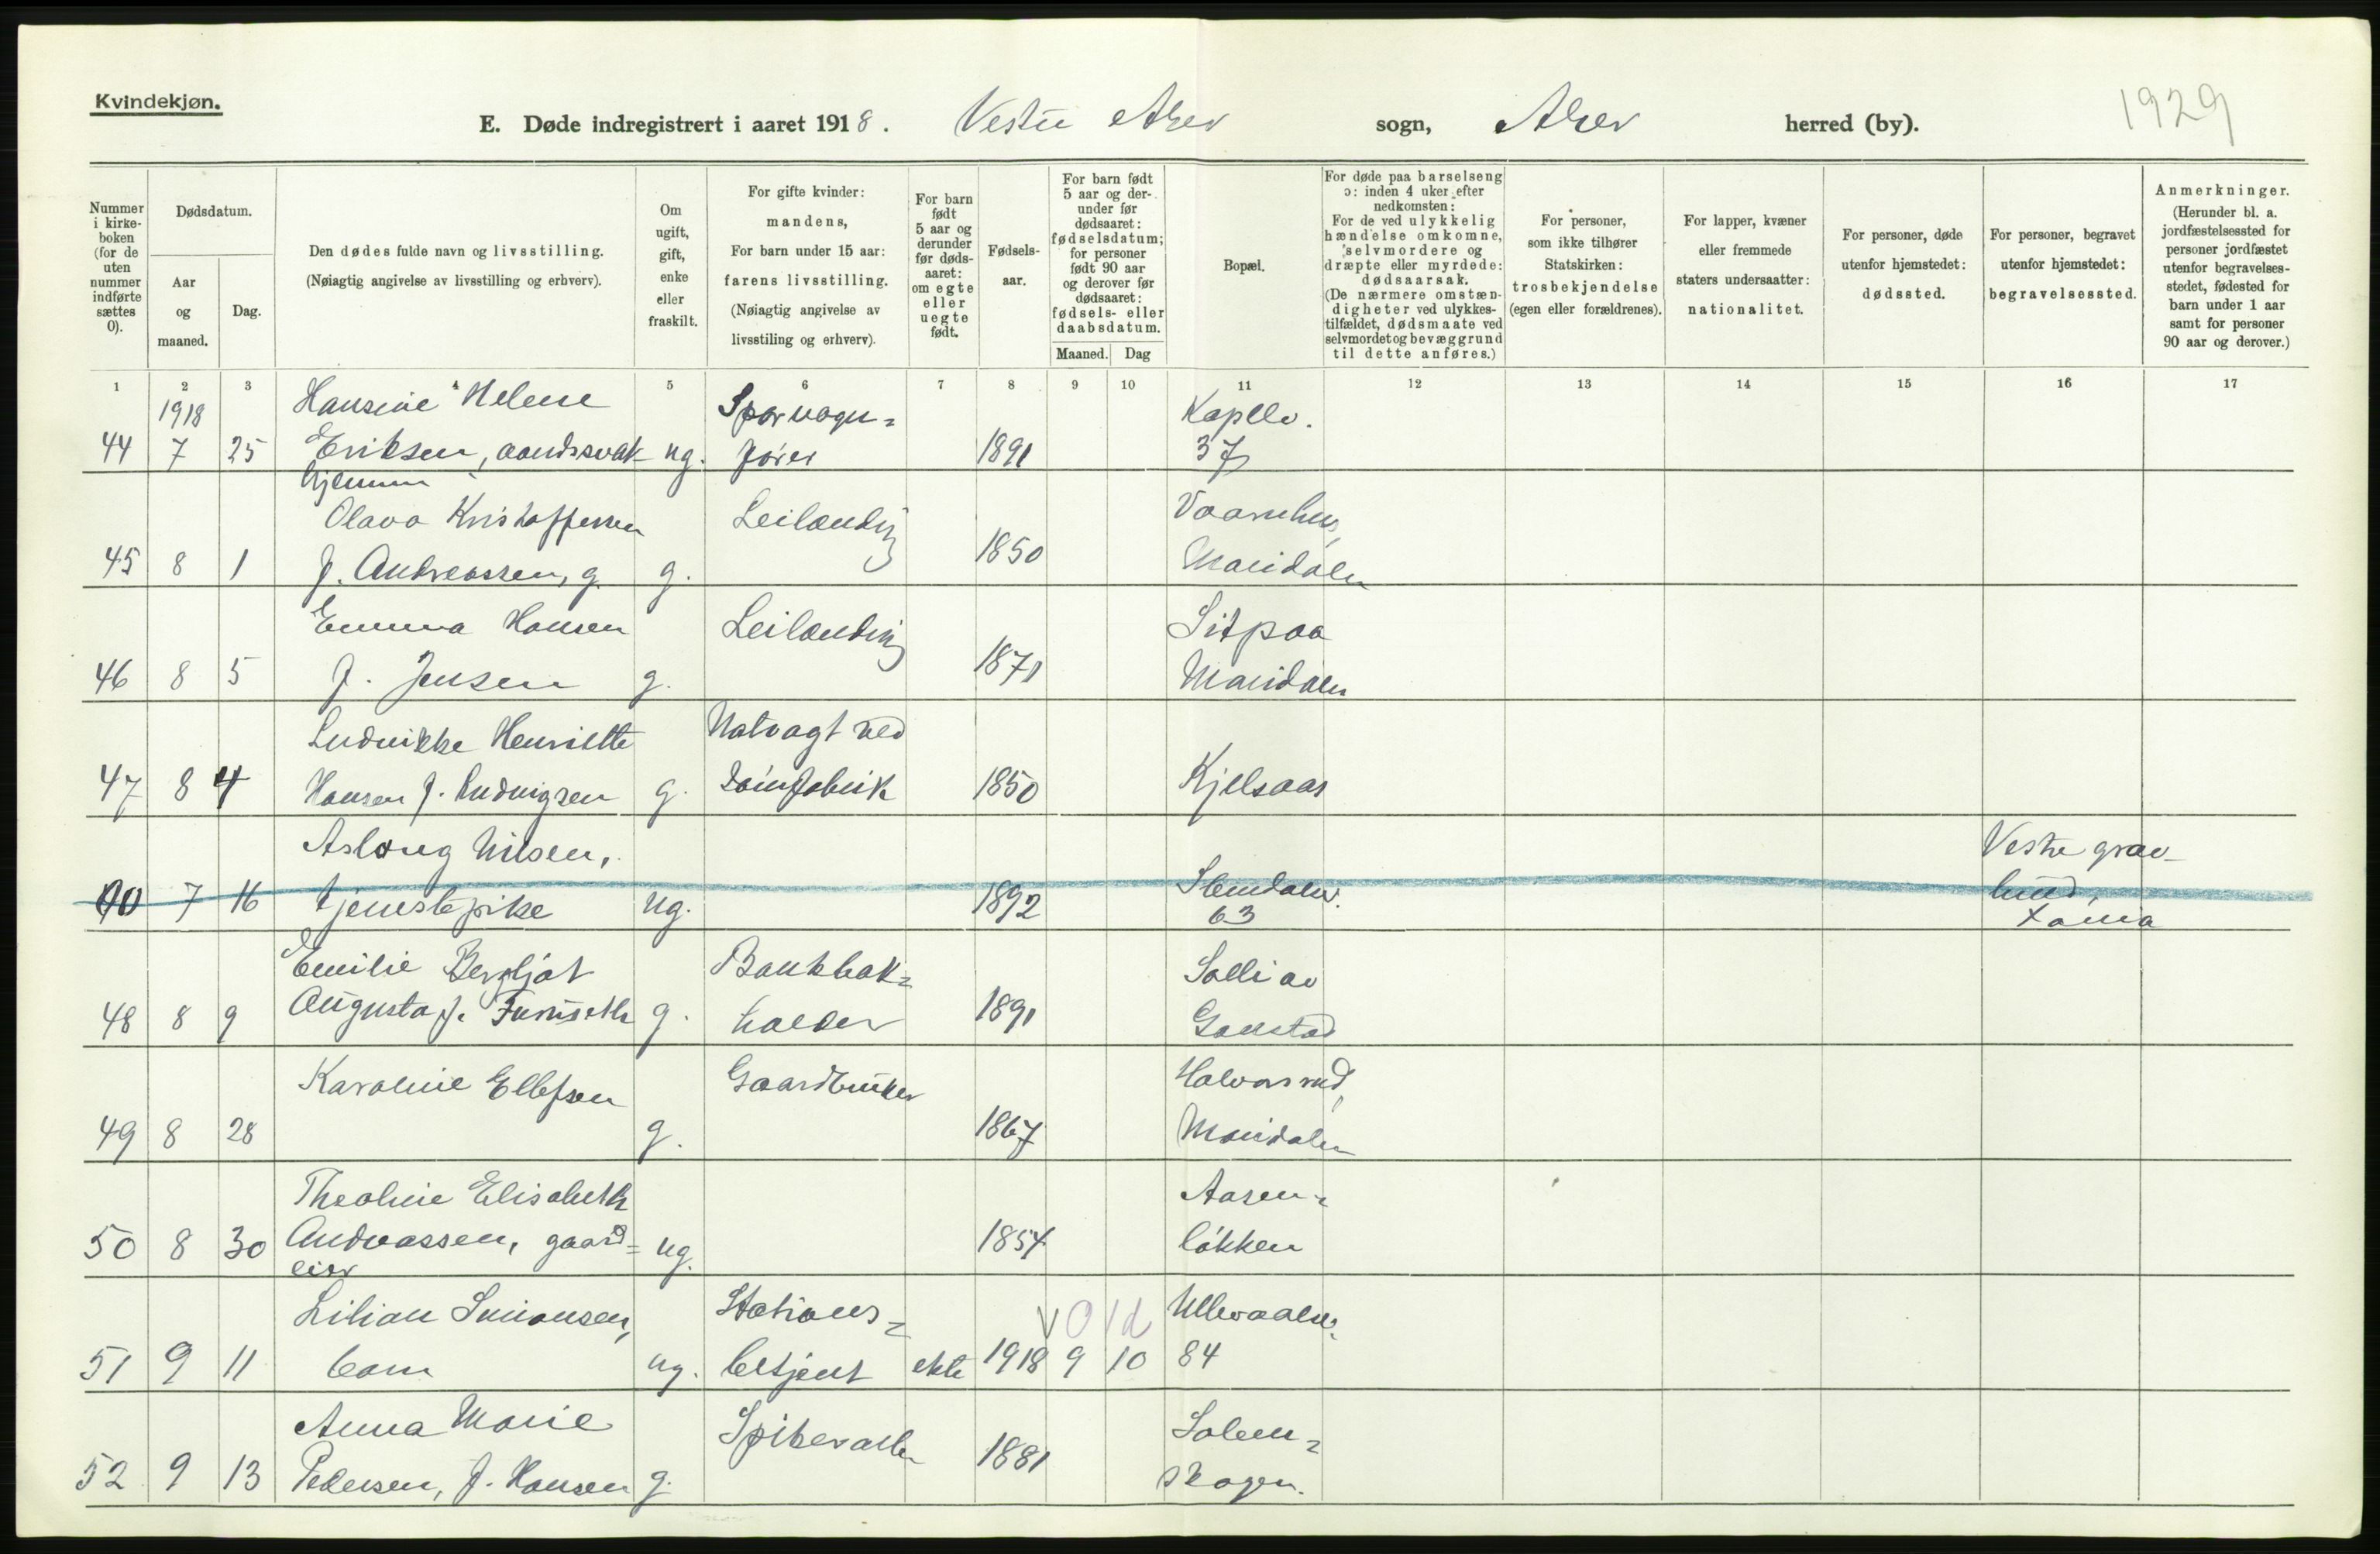 Kvindekjøn.
E. Døde indregistrert i aaret 1918. Vestre Aker sogn, Aker herred (by).
1929
Nummer i kirke-boken (for de uten nummer indførte sættes 0).
Dødsdatum.
Aar og maaned.
Dag.
Den dødes fulde navn og livsstilling.
(Nøiagtig angivelse av livsstilling og erhverv).
Om ugift, gift, enke eller fraskilt.
For gifte kvinder: mandens,
For barn under 15 aar: farens livsstilling.
(Nøiagtig angivelse av livsstiling og erhverv).
For barn født 5 aar og derunder før døds-aaret: om egte eller uegte født.
Fødsels-aar.
For barn født 5 aar og der-under før dødsaaret: fødselsdatum; for personer født 90 aar og derover før dødsaaret: fødsels- eller daabsdatum.
Maaned. Dag
Bopæl.
For døde paa barselseng ɔ: inden 4 uker efter nedkomsten:
For de ved ulykkelig hændelse omkomne, selvmordere og dræpte eller myrdede: dødsaarsak.
(De nærmere omstæn-digheter ved ulykkes-tilfældet, dødsmaate ved selvmordet og bevæggrund til dette anføres.)
For personer, som ikke tilhører Statskirken: trosbekjendelse (egen eller forældrenes).
For lapper, kvæner eller fremmede staters undersaatter: nationalitet.
For personer, døde utenfor hjemstedet: dødssted.
For personer, begravet utenfor hjemstedet: begravelsessted.
Anmerkninger.
(Herunder bl. a. jordfæstelsessted for personer jordfæstet utenfor begravelses-stedet, fødested for barn under 1 aar samt for personer 90 aar og derover.)
1 2 3 4 5 6 7 8 9 10 11 12 13 14 15 16 17
1918 Hansine Helene Sporvogn= Kapellv.
44 7 25 Eriksen, aandssvak ug. fører 1891 37
hjemme
Olava Kristoffersen Leilænding Vaarnhus,
45 8 1 f. Andreassen, g. g. 1850 Maridalen
Emma Hansen Leilænding Sitpaa
46 8 5 f. Jensen g. 1871 Maridalen
Ludvikke Henriette Natvagt ved
47 8 4 Hansen f. Ludvigsen g. 1850 Kjelsaas
Aslaug Nilsen, Vestre grav-
00 7 16 tjenestepike ug. 1892 Stendalsv. 63 lund,
Xania
Emilie Bergljot Bankbok= Solli av
48 8 9 Augusta f. Furuseth g. holder 1891 Gaustad
Karoline Ellefsen Gaardbruker Halvorsrud,
49 8 28 g. 1867 Maridalen
Theoline Elisabeth Aasen=
50 8 30 Andreassen, gaard= ug. 1854 løkken
eier
Lilian Simonsen, Stations= V 0 1d Ullevaalsv.
51 9 11 barn ug. betjent ekte 1918 9 10 84
Anna Marie Spikervalser Solem=
52 9 13 Pedersen, f. Hansen g. 1881 skogen.